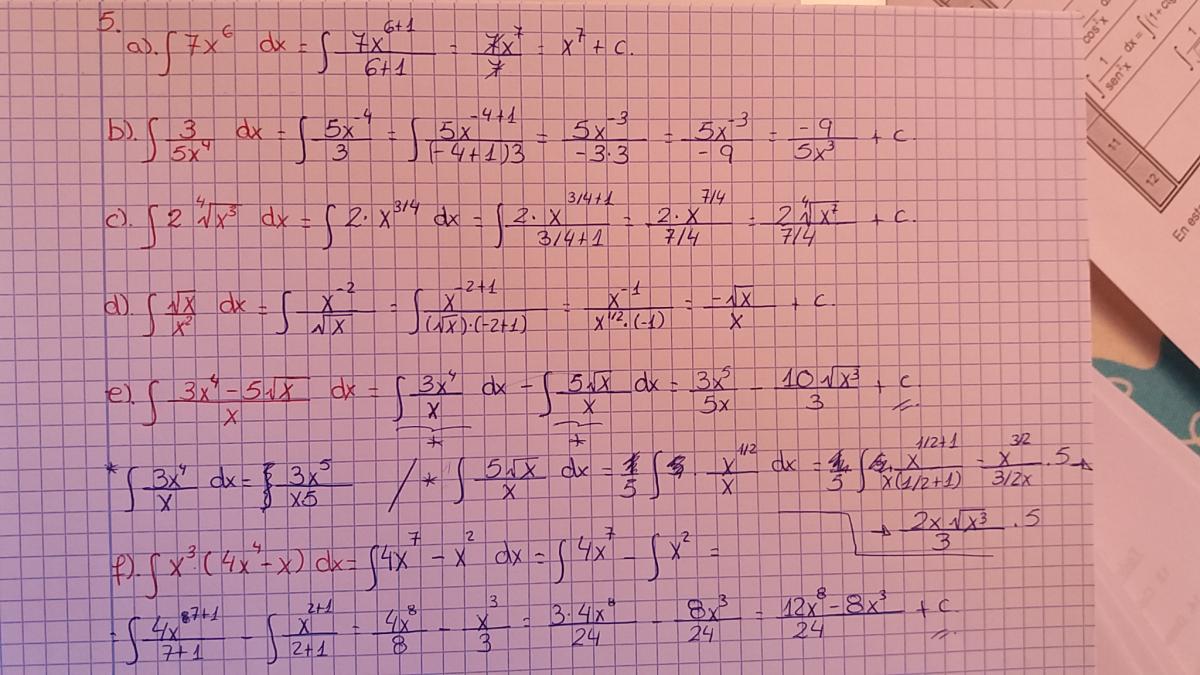 5.
a). ∫ 7x⁶ dx = ∫ 7x⁶⁺¹/6+1 = 7x⁷/7 = x⁷ + c.
b). ∫ 3/5x⁴ dx = ∫ 5x⁻⁴/3 = ∫ 5x⁻⁴⁺¹/(-4+1)3 = 5x⁻³/-3·3 = 5x⁻³/-9 = -9/5x³ + c.
c). ∫ 2 ⁴√x³ dx = ∫ 2· x^3/4 dx = ∫ 2·x^3/4+1 / 3/4+1 = 2·x^7/4 / 7/4 = 2 ⁴√x⁷ / 7/4 + c.
d). ∫ √x/x² dx = ∫ x⁻²/√x = ∫ x⁻²⁺¹/(√x)·(-2+1) = x⁻¹/x^1/2·(-1) = -√x/x + c.
e). ∫ 3x⁴-5√x/x dx = ∫ 3x⁴/x dx - ∫ 5√x/x dx = 3x⁵/5x - 10√x³/3 + c
* *
* ∫ 3x⁴/x dx = 3x⁵/x5 / * ∫ 5√x/x dx = 1/5 ∫ 5· x^1/2/x dx = 1/5 ∫ x^1/2+1/x(1/2+1) = x^3/2 / 3/2x · 5 →
→ 2x√x³/3 · 5
f). ∫ x³(4x⁴-x) dx = ∫ 4x⁷ - x² dx = ∫ 4x⁷ - ∫ x² =
= ∫ 4x⁷⁺¹/7+1 - ∫ x²⁺¹/2+1 = 4x⁸/8 - x³/3 = 3·4x⁸/24 - 8x³/24 = 12x⁸-8x³/24 + c
cos²x
∫ 1/sen²x dx = ∫(1+c
11
12
En est